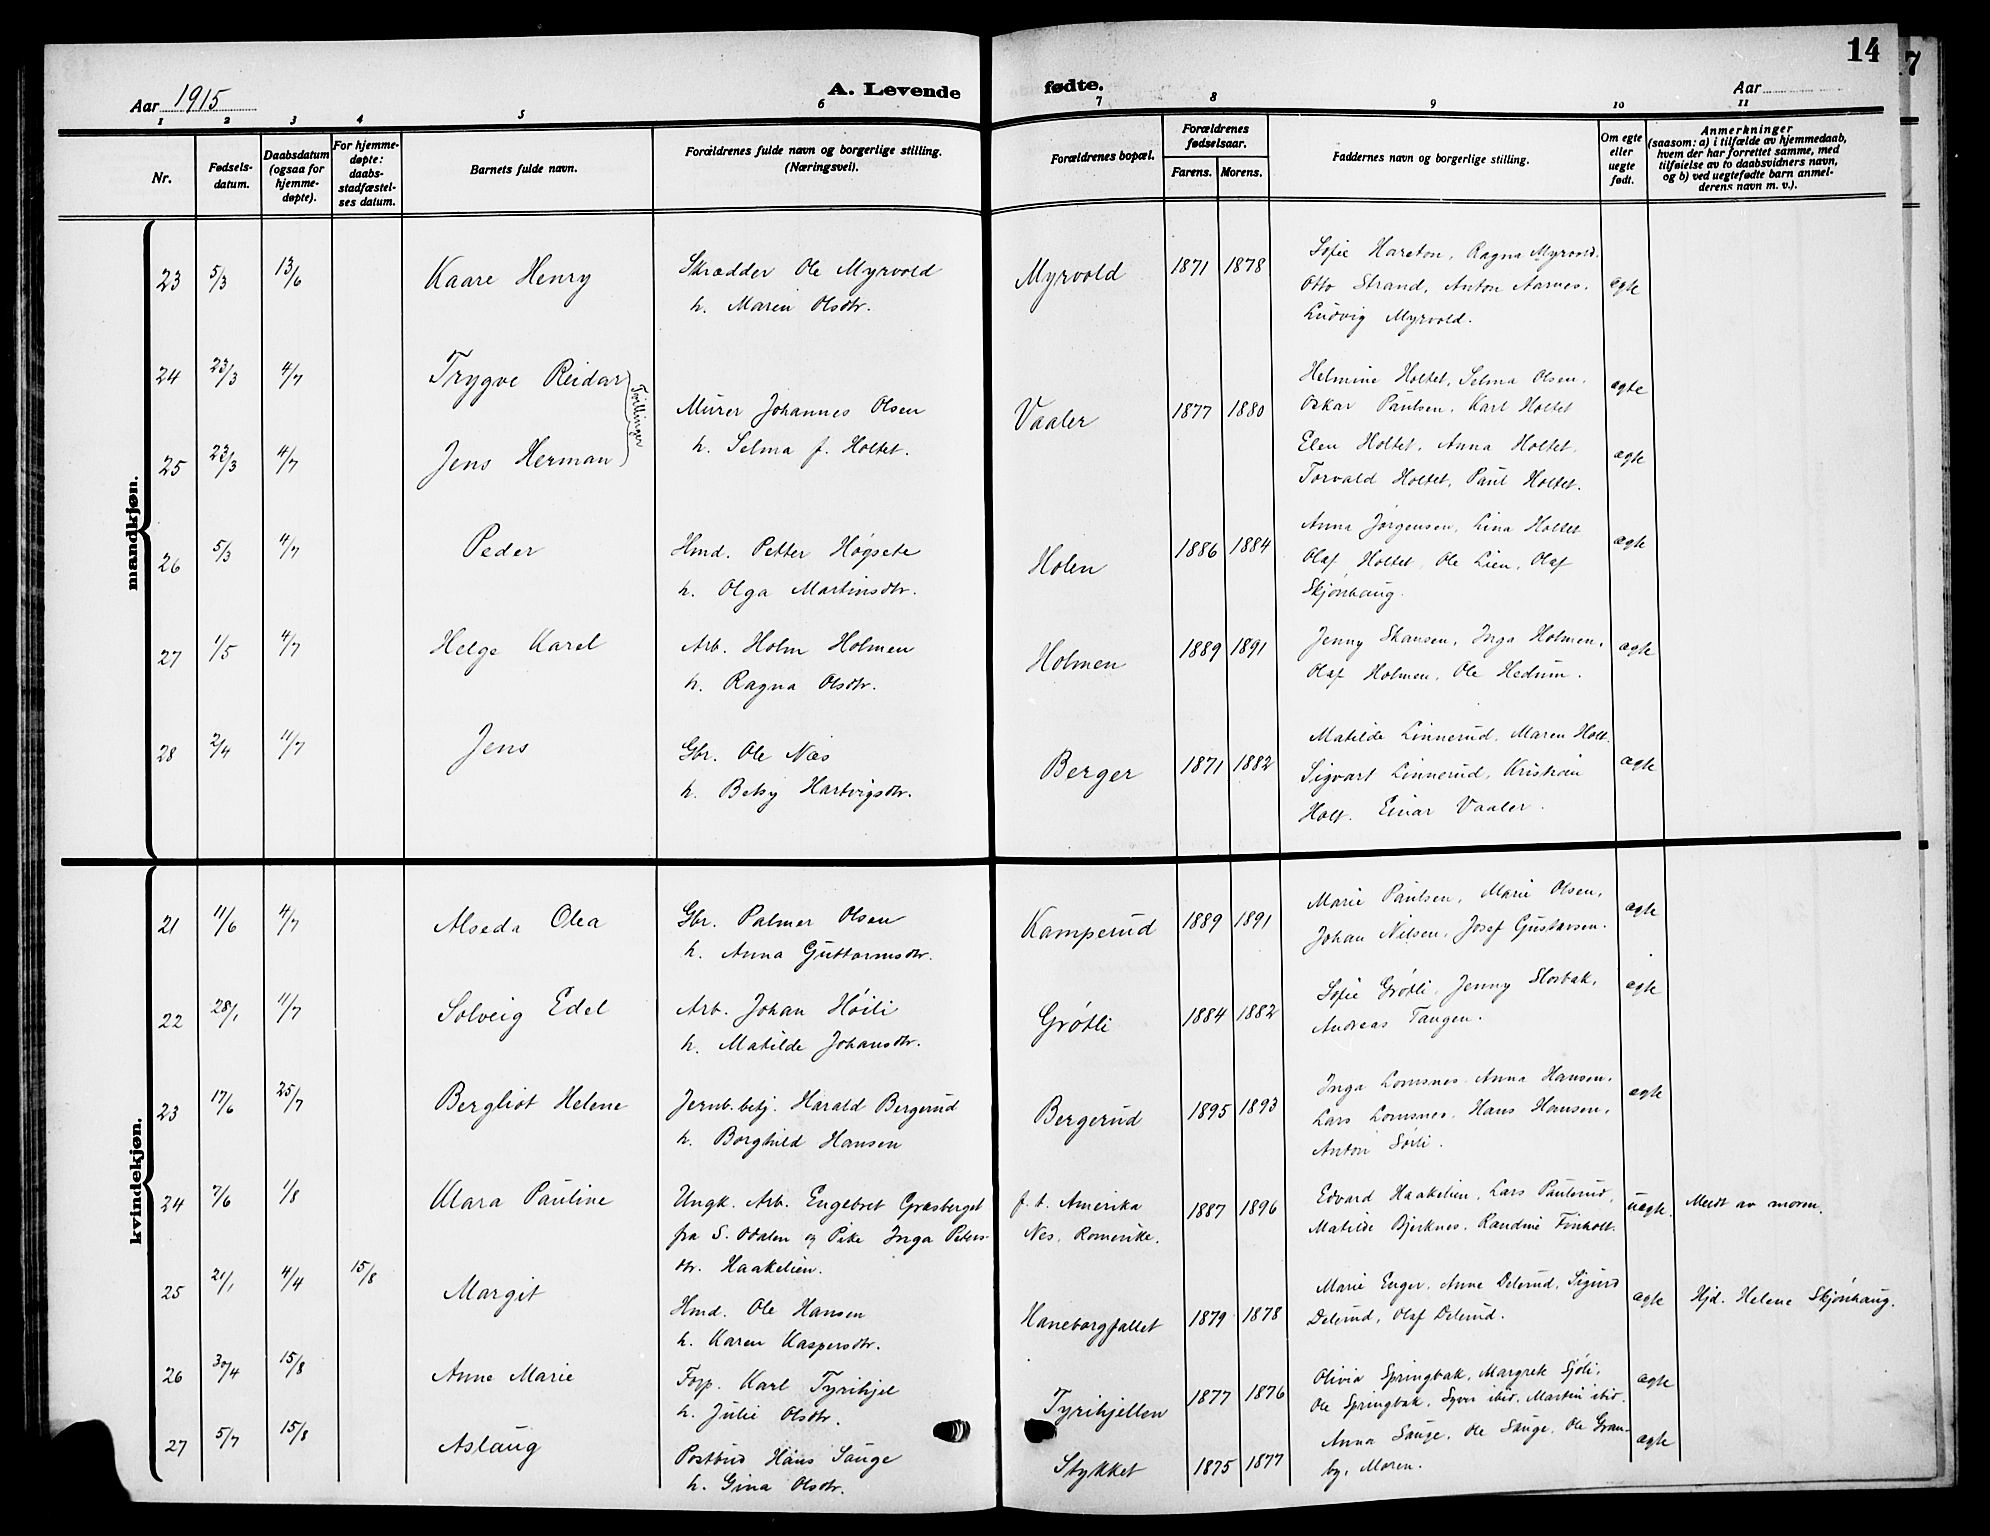 14
7
Aar 1915
A. Levende fødte.
Aar
1 2 3 4 5 6 7 8 9 10 11
Nr.
Fødsels-
datum.
Daabsdatum
(ogsaa for
hjemme-
døpte).
For hjemme-
døpte:
daabs-
stadfæstel-
ses datum.
Barnets fulde navn.
Forældrenes fulde navn og borgerlige stilling.
(Næringsvei).
Forældrenes bopæl.
Forældrenes
fødselsaar.
Farens. Morens.
Faddernes navn og borgerlige stilling.
Om egte
eller
uegte
født.
Anmerkninger
(saasom: a) i tilfælde av hjemmedaab,
hvem der har forrettet samme, med
tilføielse av to daabsvidners navn,
og b) ved uegtefødte barn anmel-
derens navn m. v.).
mandkjøn.
23 5/3 13/6 Kaare Henry Skrædder Ole Myrvold Myrvold 1871 1878 Sofie Hareton, Ragna Myrvold. ægte
h. Maren Olsdtr. Otto Strand, Anton Aarnes.
Ludvig Myrvold.
24 23/3 4/7 Trygve Reidar Tvillinger Murer Johannes Olsen Vaaler 1877 1880 Helmine Holtet, Selma Olsen. ægte
h. Selma f. Holtet. Oskar Paulsen, Karl Holtet
25 23/3 4/7 Jens Herman Elen Holtet, Anna Holtet. ægte
Torvald Holtet, Paul Holtet.
26 5/3 4/7 Peder Hmd. Petter Høgsete Holen 1886 1884 Anna Jørgensen, Lina Holtet ægte
h. Olga Martinsdtr. Olaf Holtet, Ole Lien, Olaf
Skjønhaug.
27 1/5 4/7 Helge Karel Arb. Holm Holmen Holmen 1889 1891 Jenny Skansen, Inga Holmen, ægte
h. Ragna Olsdtr. Olaf Holmen, Ole Hedum.
28 2/4 11/7 Jens Gbr. Ole Næs Berger 1871 1882 Matilde Linnerud, Maren Holt. ægte
h. Betsy Hartvigsdtr. Sigvart Linnerud, Kristian
Holt. Einar Vaaler.
kvindekjøn.
21 11/6 4/7 Alseda Olea Gbr. Palmer Olsen Kamperud 1889 1891 Marie Paulsen, Marie Olsen, ægte
h. Anna Guttormsdtr. Johan Nilsen, Josef Gustavsen.
22 28/1 11/7 Solveig Edel Arb. Johan Høili Grøtli 1884 1882 Sofie Grøtli, Jenny Slorbak, ægte
h. Matilde Johansdtr. Andreas Tangen.
23 17/6 25/7 Bergliot Helene Jernb.betj. Harald Bergerud Bergerud 1895 1893 Inga Lomsnes Anna Hansen, ægte
h. Borghild Hansen Lars Lomsnes, Hans Hansen,
Anton Sørli.
24 7/6 1/8 Klara Pauline Ungk. Arb. Engebret Græsberget f. t. Amerika 1887 1896 Edvard Haakelien, Lars Paulsrud, uægte. Meldt av moren.
fra S. Odalen og Pike Inga Peters- Nes, Romerike. Matilde Bjerknes, Randine Finholt.
dtr. Haakelien.
25 21/1 4/4 15/8 Margit Hmd. Ole Hansen Haneborgfallet 1879 1878 Marie Enger, Anne Delerud, Sigurd ægte Hjd. Helene Skjønhaug.
h. Karen Kaspersdtr. Delerud, Olaf Delerud.
26 30/4 15/8 Anne Marie Forp. Karl Tyrihjel Tyrihjellen 1877 1876 Olivia Springbak, Margrete Sjøli, ægte
h. Julie Olsdtr. Ole Springbak, Syver ibid, Martin ibid
27 5/7 15/8 Aslaug Postbud Hans Sauge Stykket 1875 1877 Anna Sauge, Ole Sauge, Ole Gran- ægte
h. Gina Olsdtr. by, Moren.